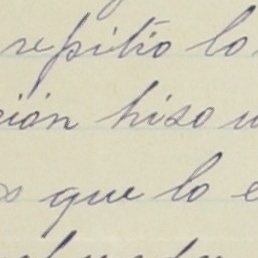 repitio lo
ción hiso u
que lo e